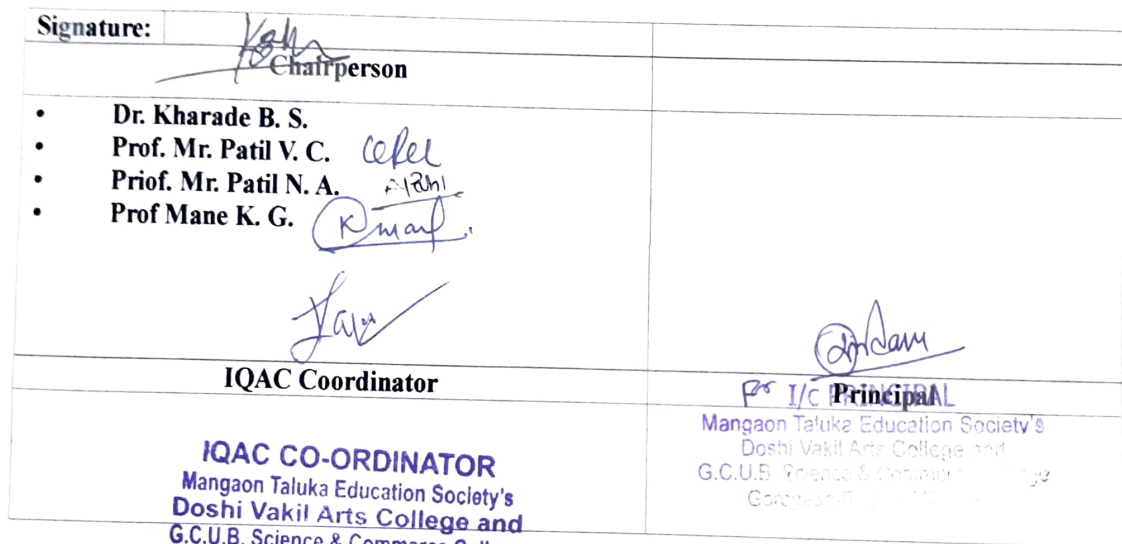 Signature:
Chairperson
• Dr. Kharade B. S.
• Prof. Mr. Patil V. C.
• Priof. Mr. Patil N. A.
• Prof Mane K. G.
IQAC Coordinator
for I/C PRINCIPAL
Principal
Mangaon Taluka Education Society's
Doshi Vakil Arts College and
G.C.U.B. Science &
IQAC CO-ORDINATOR
Mangaon Taluka Education Society's
Doshi Vakil Arts College and
G.C.U.B. Science & Commerce